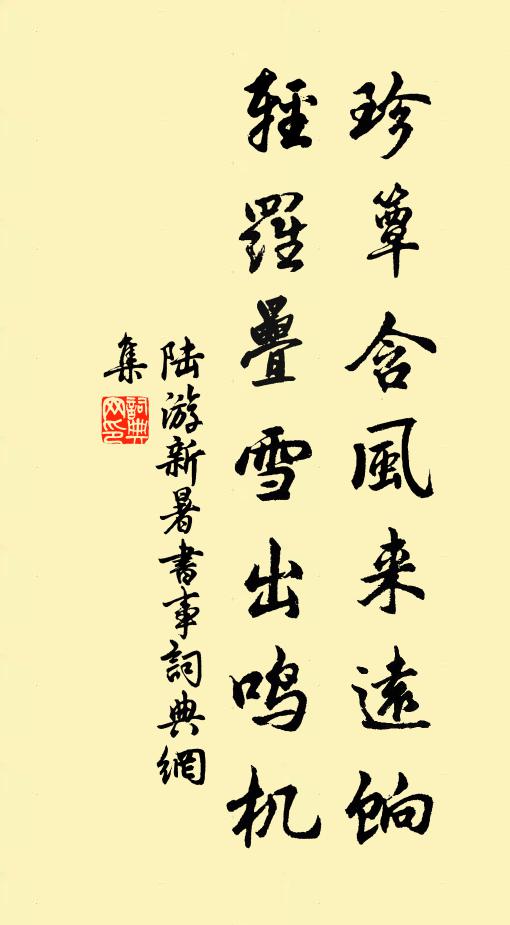 珍簟含風来遠餉
輕羅疊雪出鸣机
陆游新暑書事詞典網
集
詞典网印